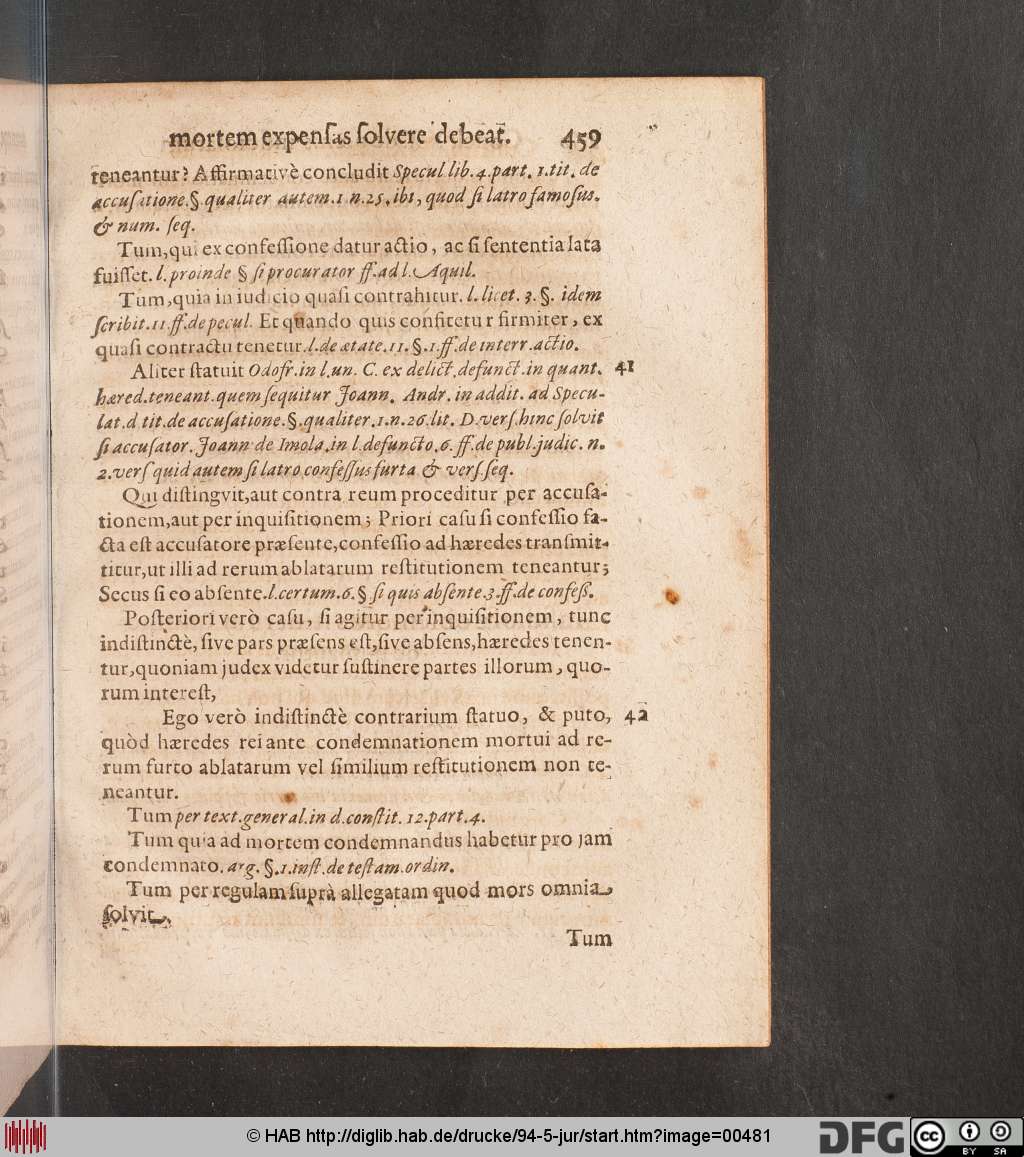 mortem expenſas ſolvere debeat. 459
teneantur? Affirmativè concludit Specul. lib. 4. part. 1. tit. de
accuſatione. §. qualiter autem. 1 n. 25. ibi, quod ſi latro famoſus.
& num. ſeq.
Tum, qui ex confeſſione datur actio, ac ſi ſententia lata
fuiſſet. l. proinde § ſi procurator ff. ad l. Aquil.
Tum, quia in iudicio quaſi contrahitur. l. licet. 3. §. idem
ſcribit. 11 ff. de pecul. Et quando quis confitetur firmiter, ex
quaſi contractu tenetur. l. de ætate. 11. §. 1. ff. de interr. actio.
Aliter ſtatuit Odofr. in l. un. C. ex delict. defunct. in quant. 41
hæred. teneant. quem ſequitur Joann. Andr. in addit. ad Specu-
lat. d. tit. de accuſatione. §. qualiter. 1. n. 26. lit. D. verſ. hinc ſolvit
ſi accuſator. Joann de Imola. in l. defuncto. 6. ff. de publ. judic. n.
2. verſ quid autem ſi latro confeſſus furta & verſ. ſeq.
Qui diſtingvit, aut contra reum proceditur per accuſa-
tionem, aut per inquiſitionem; Priori caſu ſi confeſſio fa-
cta eſt accuſatore præſente, confeſſio ad hæredes tranſmit-
titur, ut illi ad rerum ablatarum reſtitutionem teneantur;
Secus ſi eo abſente. l. certum. 6. § ſi quis abſente. 3. ff. de confeſſ.
Poſteriori verò caſu, ſi agitur per inquiſitionem, tunc
indiſtinctè, ſive pars præſens eſt, ſive abſens, hæredes tenen-
tur, quoniam judex videtur ſuſtinere partes illorum, quo-
rum intereſt,
Ego verò indiſtinctè contrarium ſtatuo, & puto, 42
quòd hæredes rei ante condemnationem mortui ad re-
rum furto ablatarum vel ſimilium reſtitutionem non te-
neantur.
Tum per text. general. in d. conſtit. 12. part. 4.
Tum quia ad mortem condemnandus habetur pro jam
condemnato. arg. §. 1. inſt. de teſtam. ordin.
Tum per regulam ſuprà allegatam quod mors omnia
ſolvit.
Tum
© HAB http://diglib.hab.de/drucke/94-5-jur/start.htm?image=00481
DFG
cc BY SA